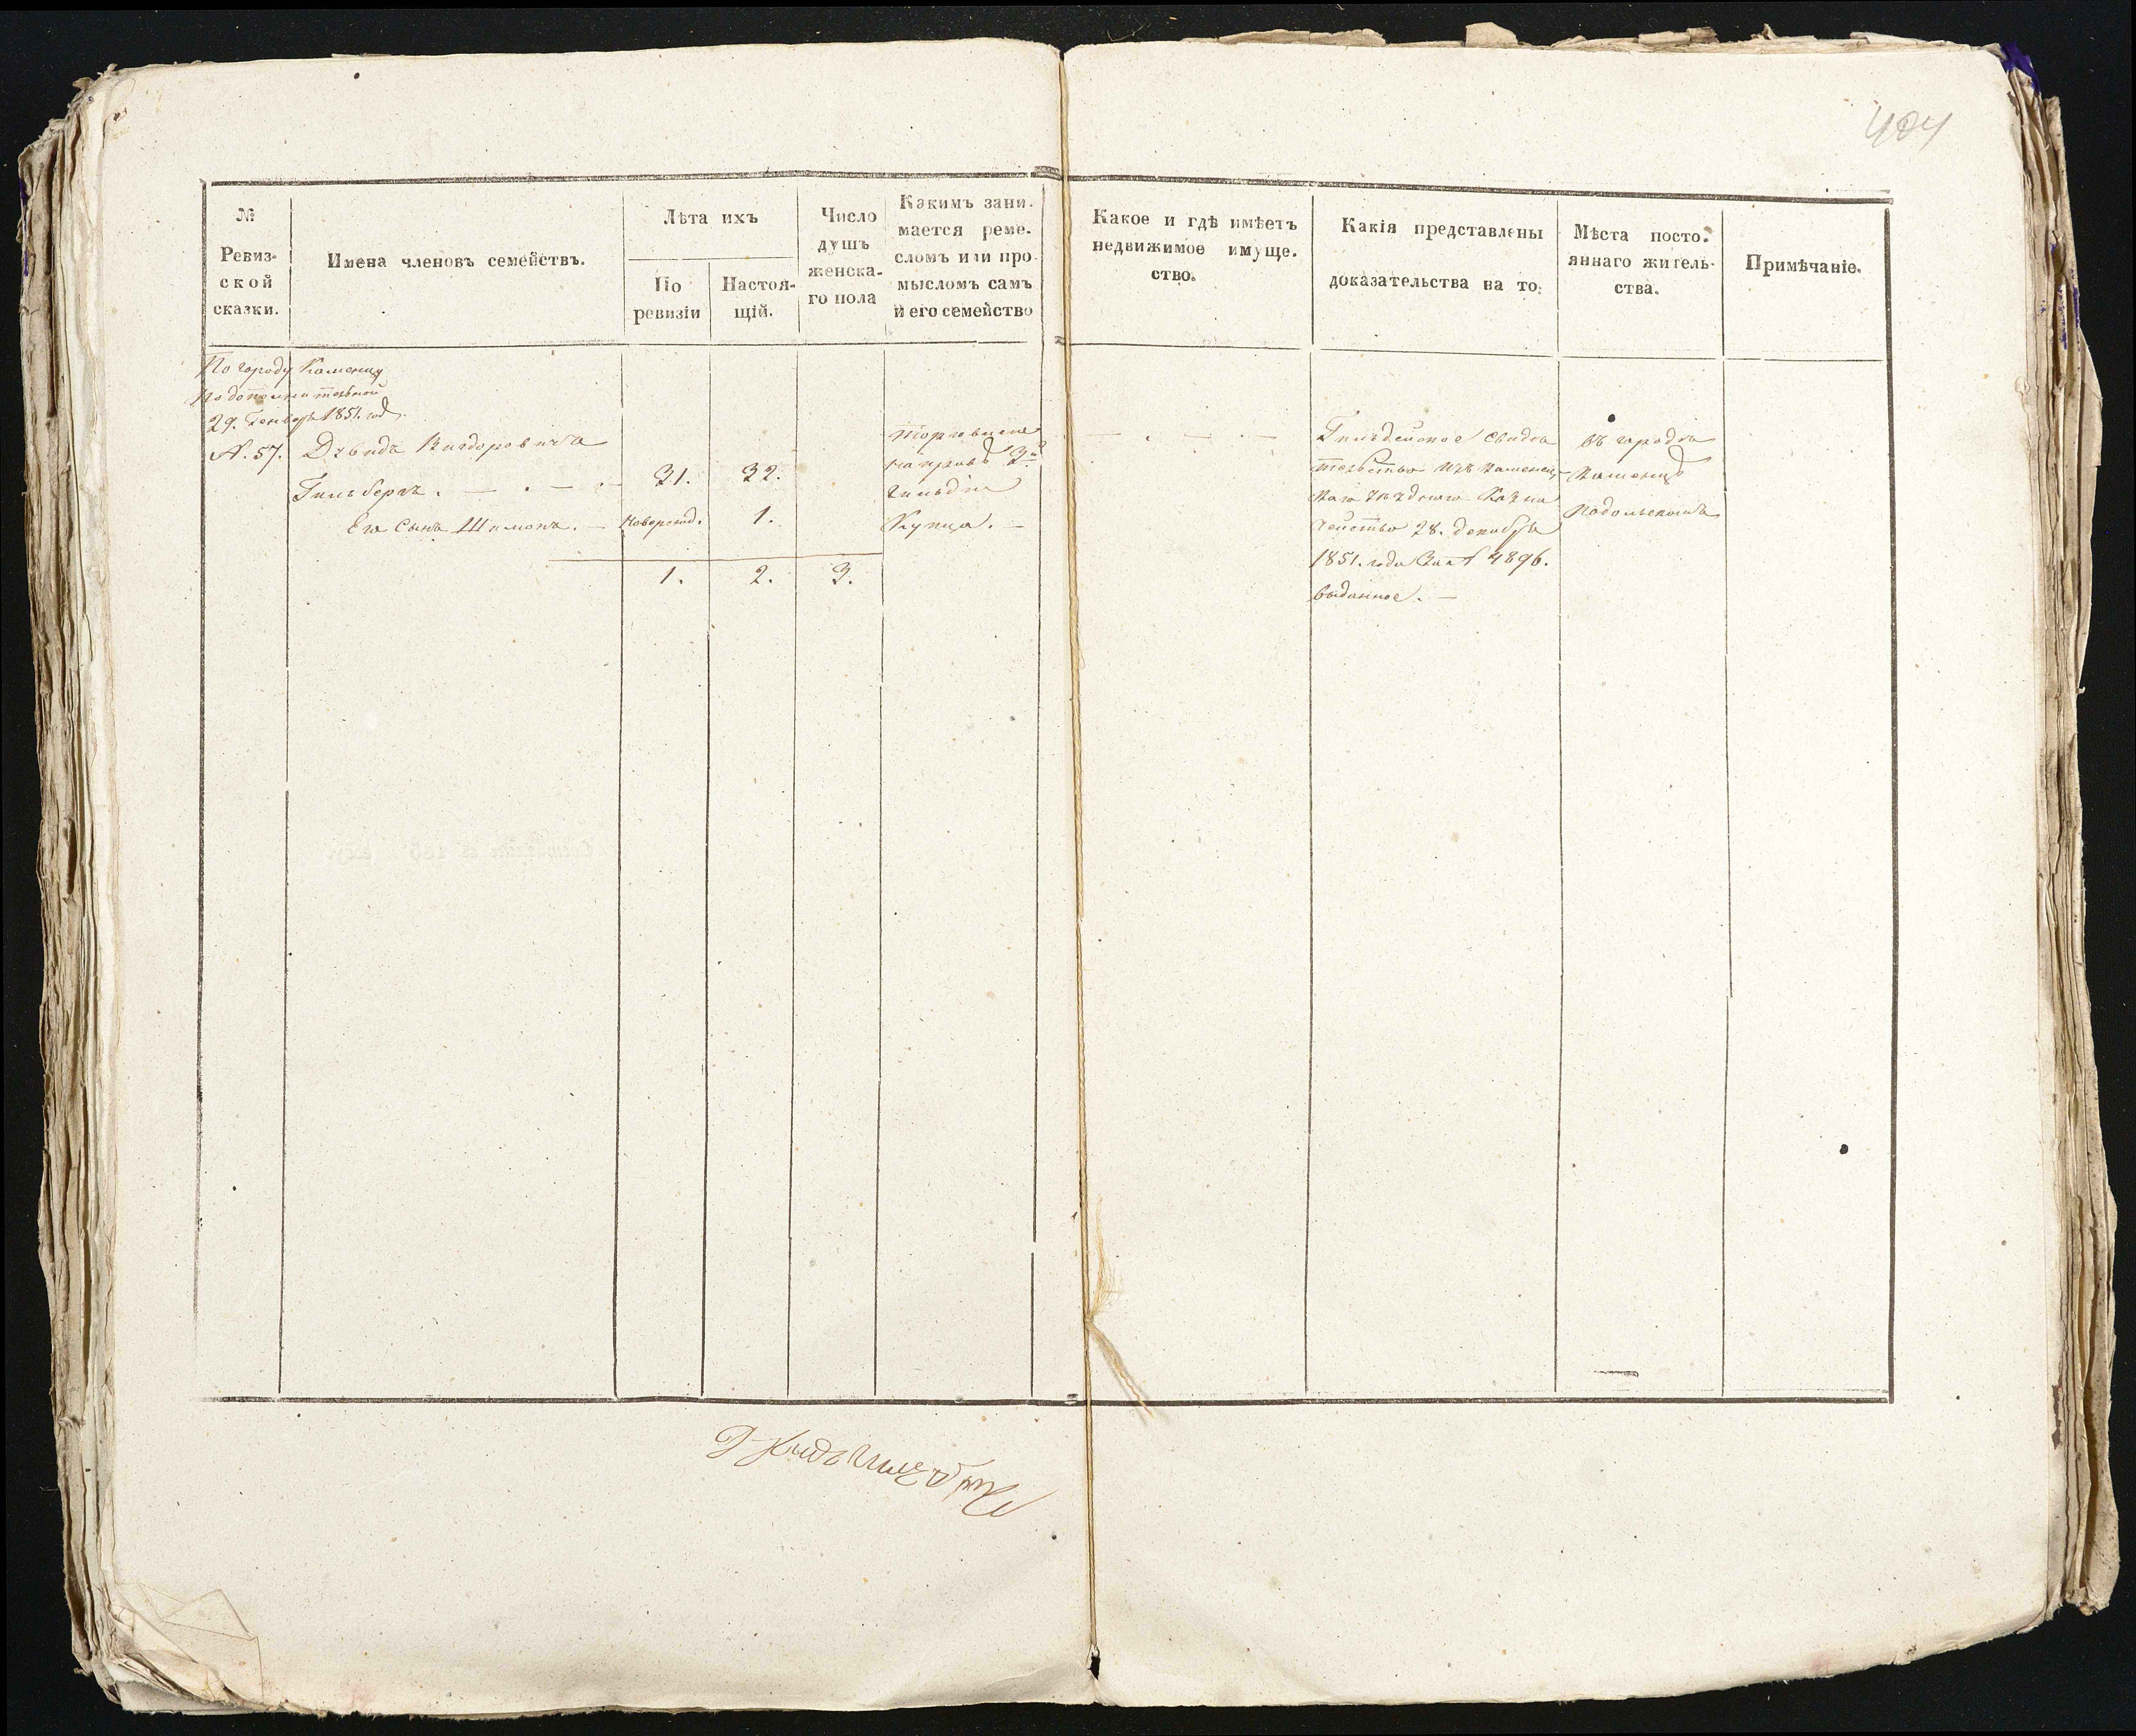 404
№
Ревиз-
ской
сказки.
Имена членовъ семействъ.
Лѣта ихъ
По
ревизіи
Настоя-
щій.
Число
душъ
женска-
го пола
Какимъ зани-
мается реме-
сломъ или про-
мысломъ самъ
и его семейство
Какое и гдѣ имѣетъ
недвижимое имуще-
ство.
Какія представлены
доказательства на то:
Мѣста посто-
яннаго житель-
ства.
Примѣчаніе.
По городу Каменцу
по дополнительной
29. Генваря 1851. год.
№. 57. Дувидъ Вигдоровичъ
Гильберъ. 31. 32.
Его Сынъ Шимонъ. Новорожд. 1.
1. 2. 3.
на правѣ 3й
гильдіи
Купца.
Гильдейское свидѣ
тельство изъ Каменец-
каго уѣзднаго Казна
чейства 28. декабря
1851. года за № 4896.
выданное.
въ городѣ
Каменцѣ
Подольскомъ